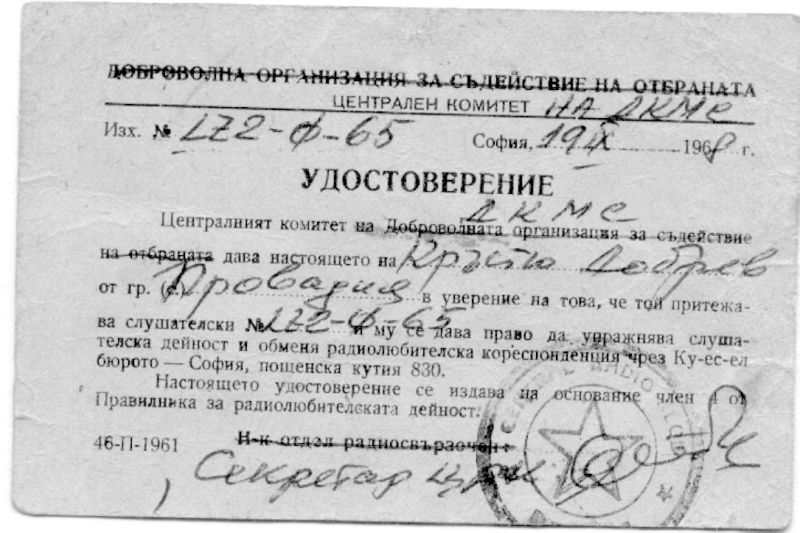 ДОБРОВОЛНА ОРГАНИЗАЦИЯ ЗА СЪДЕЙСТВИЕ НА ОТБРАНАТА
ЦЕНТРАЛЕН КОМИТЕТ НА ДКМС
Изх. № LZ2-Ф-65 София, 19 IX 1968 г.
УДОСТОВЕРЕНИЕ
ДКМС
Централният комитет на Доброволната организация за съдействие
на отбраната дава настоящето на Кръстю Добрев
от гр. (с.) Провадия в уверение на това, че той притежа-
ва слушателски № LZ2-Ф-65 и му се дава право да упражнява слуша-
телска дейност и обменя радиолюбителска кореспонденция чрез Ку-ес-ел
бюрото — София, пощенска кутия 830.
Настоящето удостоверение се издава на основание член 4 от
Правилника за радиолюбителската дейност.
46-П-1961 Н-к отдел радиосвързочен:
Секретар ЦРК
CENTRAL RADIO CLUB